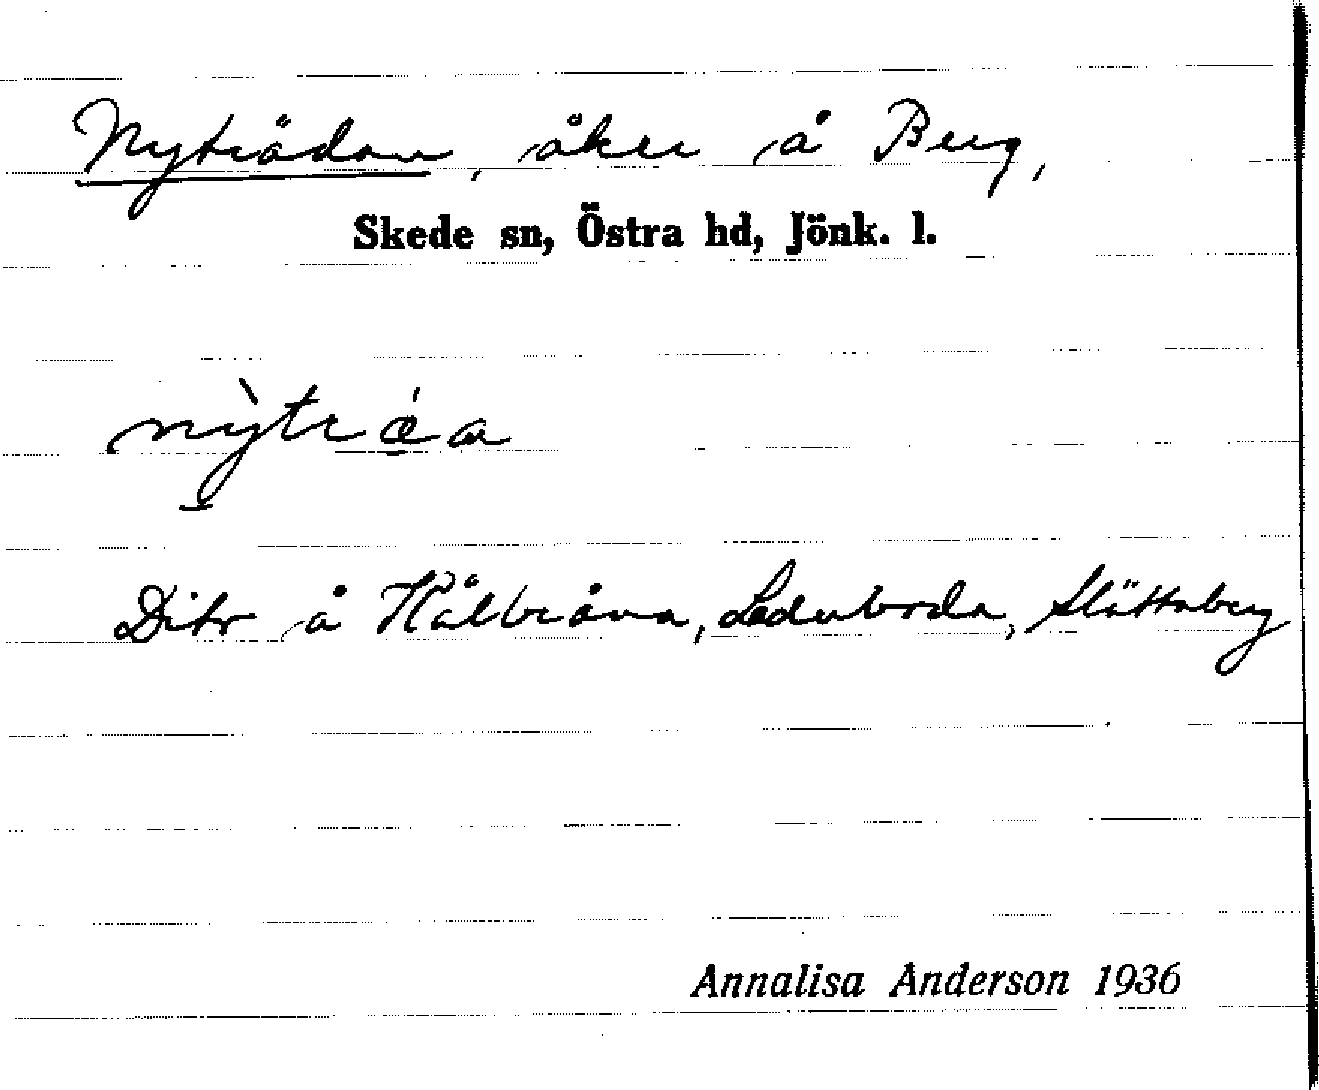 Nyträdan, åker å Berg,
Skede sn, Östra hd, Jönk. l.
Dito å Hålbråna, Laduboda, Slättaberg
Annalisa Anderson 1936